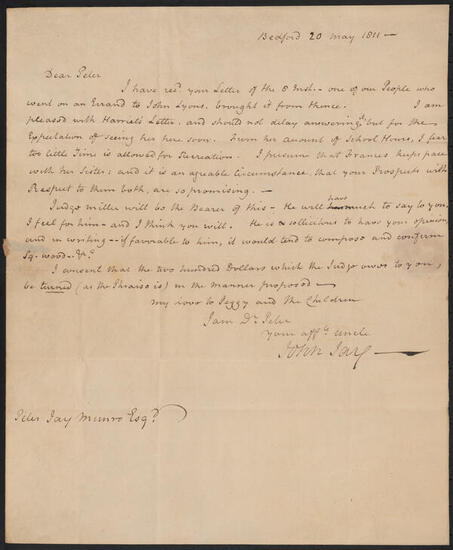 Bedford 20 May 1811 —
Dear Peter
I have red your Letter of the 8 Inst. – one of our People who
went on an Errand to John Lyons, brought it from thence. I am
pleased with Harriets Letter, and should not delay answering it, but for the
Expectation of seeing her here soon. From her account of School Hours, I fear
too little Time is allowed for Recreation. I presume that Frances keeps pace
with her Sister; and it is an agreable Circumstance, that your Prospects with
Respect to them both, are so promising. —
Judge miller will be the Bearer of this – He will have much to say to you.
I feel for him – and I think you will. He is solicitous to have your opinion,
and in writing – if favorable to him, it would tend to compose and confirm
Sq. wood – &c.
I consent that the two hundred Dollars which the Judge owes to you,
be turned (as the Phraise is) in the manner proposed —
my love to Peggy and the Children
I am Dr. Peter
your affte. uncle
John Jay —
Peter Jay Munro Esqr.